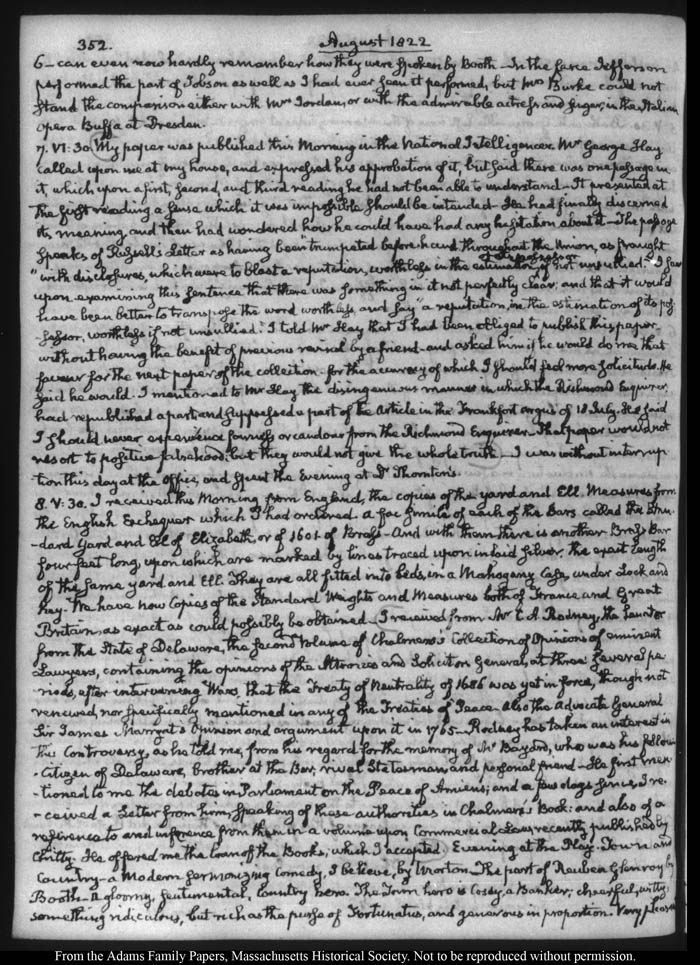 352.
August 1822
6 – can even now hardly remember how they were spoken by Booth – In the farce Jefferson
performed the part of Tobson as well as I had ever seen it performed, but Mrs Burke could not
stand the comparison either with Mrs Jordan, or with the admirable actress and singer, in the Italian
opera Buffa at Dresden.
7. VI: 30. My paper was published this Morning in the National Intelligencer. Mr George Hay
called upon me at my house, and expressed his approbation of it, but said there was one passage in
it, which upon a first, second, and third reading he had not been able to understand – It presented at
the first reading a sense which it was impossible should be intended – He had finally discerned
its meaning, and then had wondered how he could have had any hesitation about it – The passage
speaks of Russell's Letter as having been "trumpeted beforehand throughout the Union, as fraught
of its possessor
"with disclosures, which were to blast a reputation, worthless in the estimation if not unsullied." I saw
upon examining this sentence that there was something in it not perfectly clear; and that it would
have been better to transpose the word worthless, and say "a reputation, in the estimation of its pos-
-sessor, worthless if not unsullied. I told Mr Hay that I had been obliged to publish this paper
without having the benefit of previous revisal by a friend – and asked him if he would do me that
favour for the next paper of the collection – for the accuracy of which I should feel more solicitude. He
said he would. I mentioned to Mr Hay the disingenuous manner in which the Richmond Enquirer
had republished a part, and suppressed a part of the Article in the Frankfort Argus of 18 July. He said
I should never experience fairness or candour from the Richmond Enquirer – That paper would not
resort to positive falsehood; but they would not give the whole truth – I was without interrup
tion this day at the Office, and spent the Evening at Dr Thornton's.
8. V: 30. I received this Morning from England, the copies of the yard and Ell Measures from
the English Exchequer which I had ordered. a fac simile of each of the Bars called the Stan-
-dard Yard and Ell of Elizabeth, or of 1601 of Brass – And with them there is another Brass Bar
four feet long, upon which are marked by lines traced upon inlaid silver, the exact length
of the same yard and Ell. They are all fitted into beds, in a Mahogany Case, under Lock and
Key. We have now Copies of the Standard Weights and Measures both of France and Great
Britain, as exact as could possibly be obtained – I received from Mr C. A. Rodney, the Senator
from the State of Delaware, the second volume of Chalmers's Collection of Opinions of eminent
Lawyers, containing the opinions of the Attornies and Solicitors General, at three several pe-
riods, after intervening Wars, that the Treaty of Neutrality of 1686 was yet in force, though not
renewed, nor specifically mentioned in any of the Treaties of Peace. Also the Advocate General
Sir James Marryat's Opinion and argument upon it in 1765 – Rodney has taken an interest in
this Controversy, as he told me, from his regard for the memory of Mr Bayard, who was his fellow-
-Citizen of Delaware, brother at the Bar, rival Statesman, and personal friend – He first men-
-tioned to me the debates in Parliament on the Peace of Amiens; and a few days since, I re-
-ceived a Letter from him, speaking of these authorities in Chalmers's Book: and also of a
reference to and inference from them in a volume upon Commercial Laws recently published by
Chitty. He offered me the loan of the Books, which I accepted. Evening at the Play. Town and
Country – a Modern sermonizing Comedy, I believe, by Morton. The part of Reuben Glenroy by
Booth – a gloomy, sentimental, Country hero. The Town hero is Cosey, a Banker; cheerful, witty,
something ridiculous, but rich as the purse of Fortunatus, and generous in proportion. Very pleasan
From the Adams Family Papers, Massachusetts Historical Society. Not to be reproduced without permission.